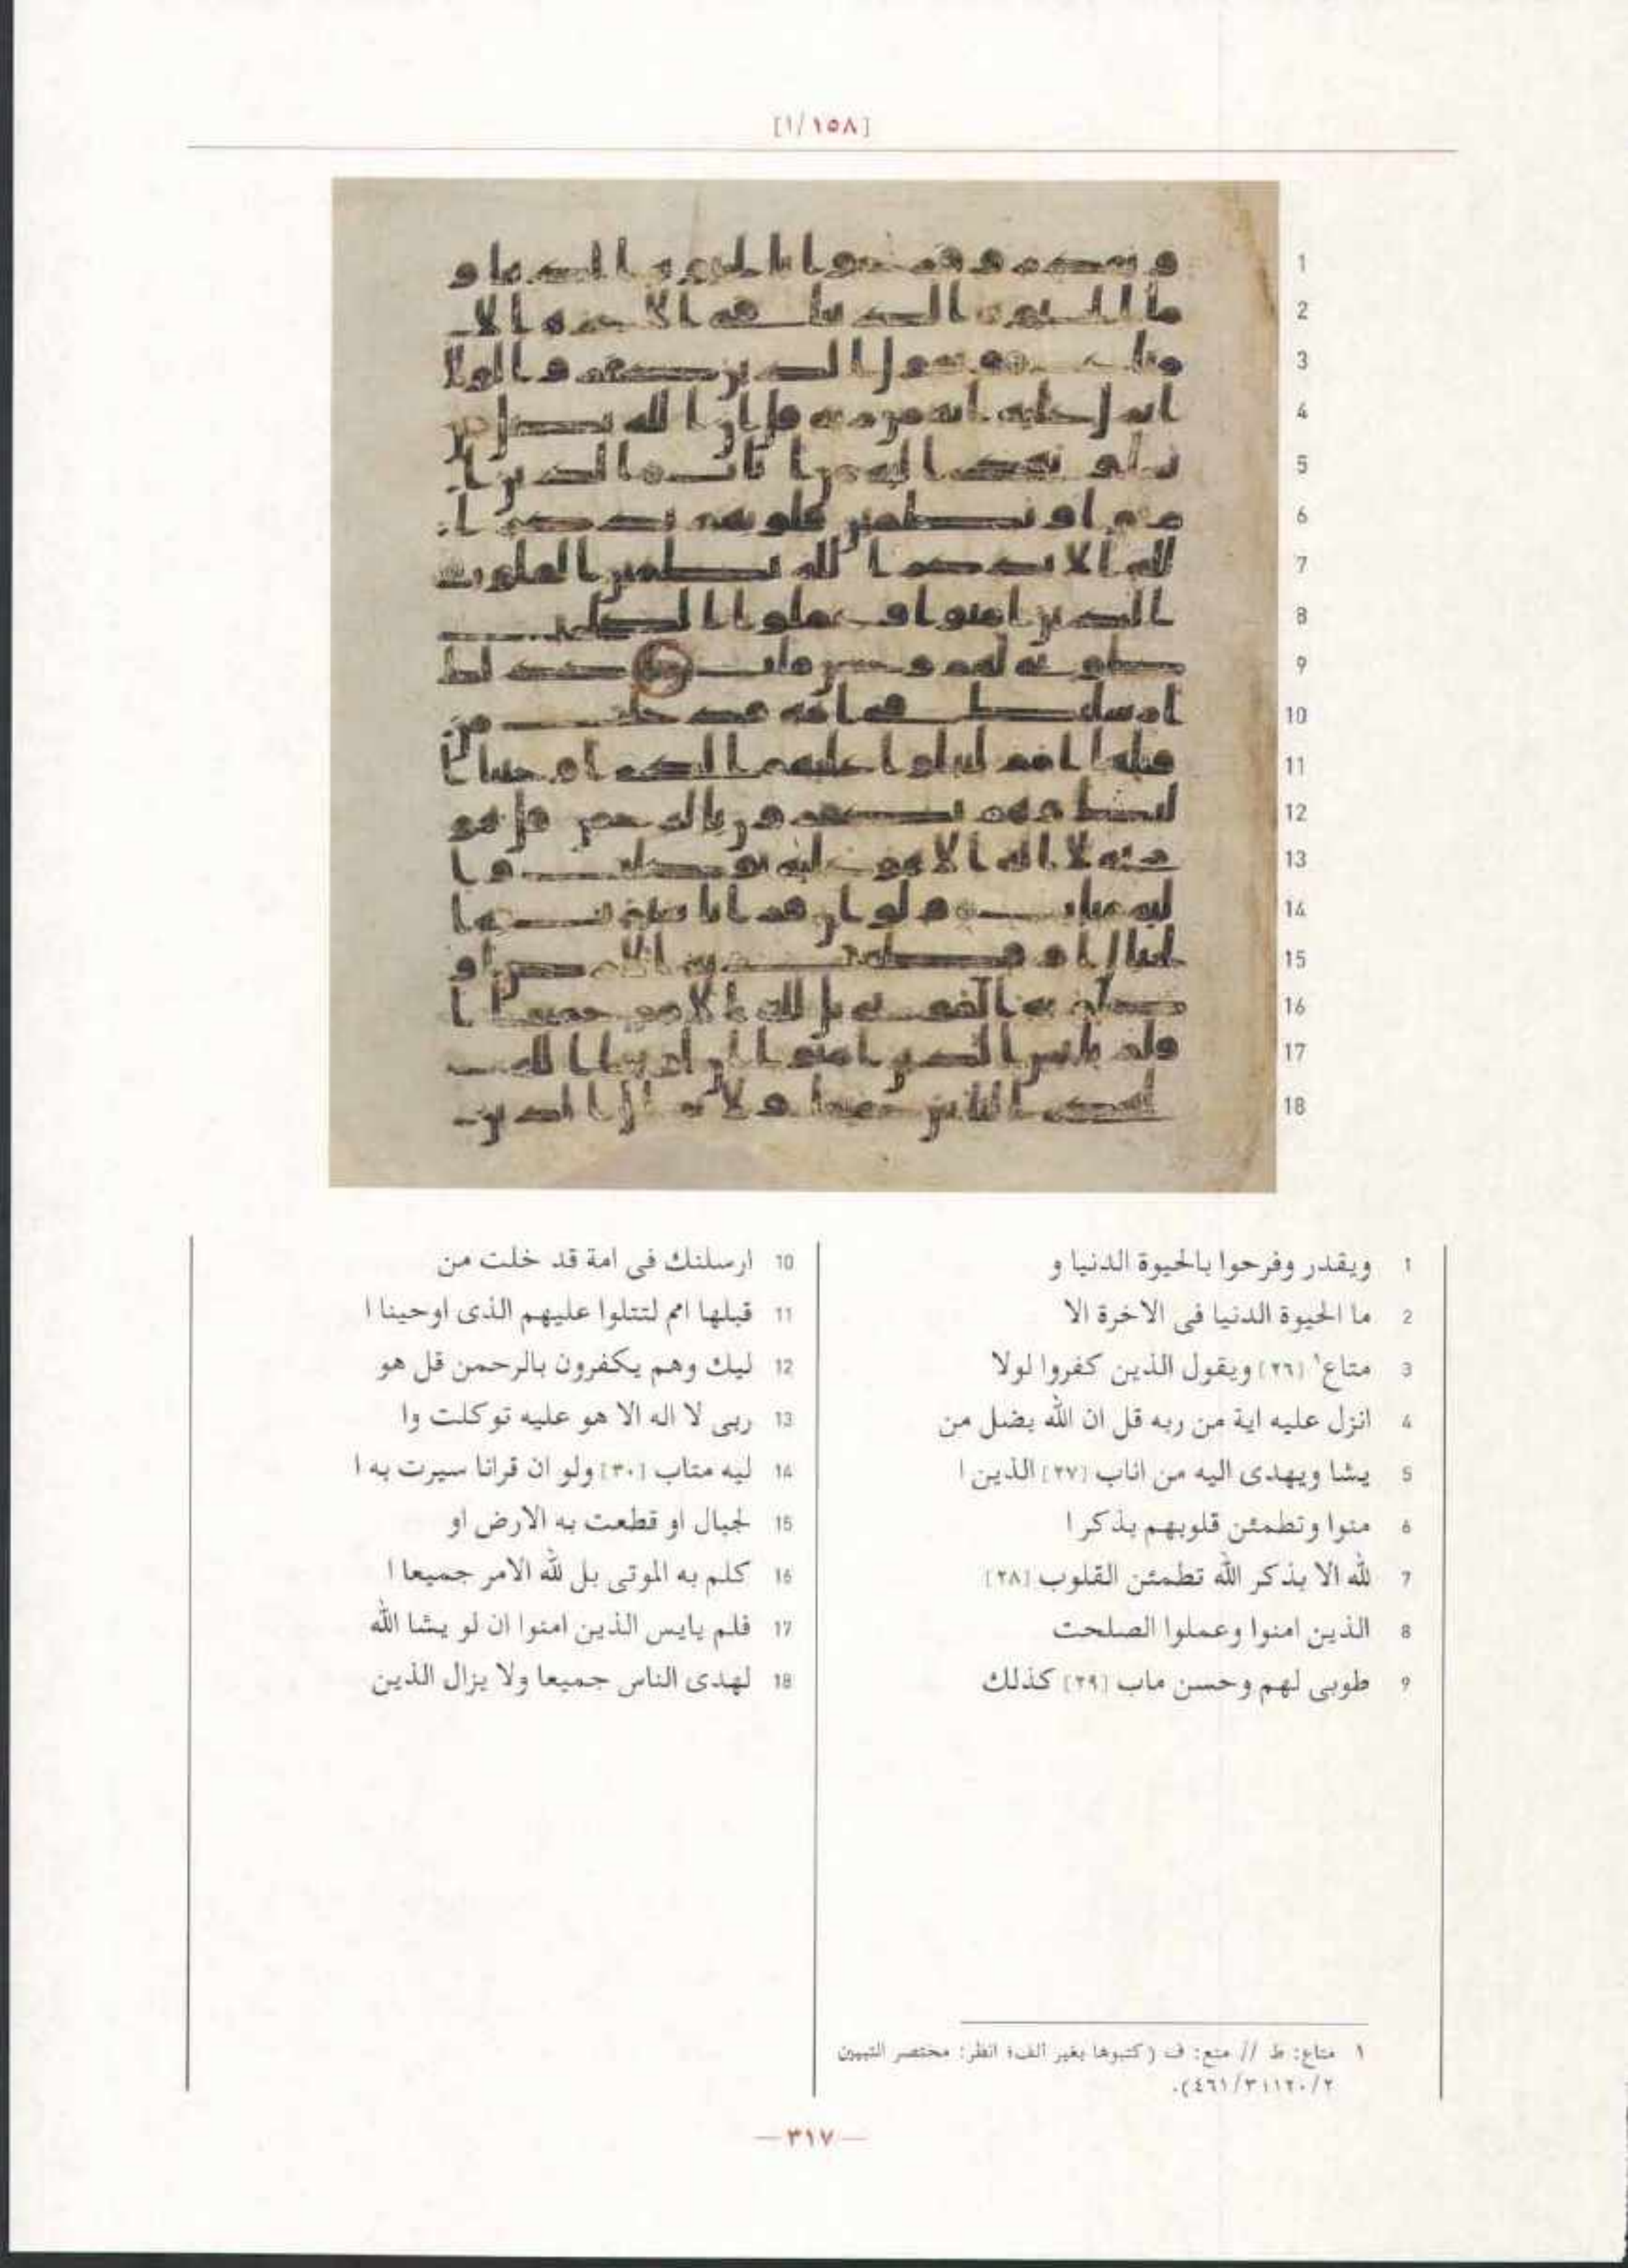 [١/١٥٨]
1
2
3
4
5
6
7
8
9
10
11
12
13
14
15
16
17
18
1 ويقدر وفرحوا بالحيوة الدنيا و
2 ما الحيوة الدنيا فى الاخرة الا
3 متاع١ [٢٦] ويقول الذين كفروا لولا
4 انزل عليه اية من ربه قل ان الله يضل من
5 يشا ويهدى اليه من اناب [٢٧] الذين ا
6 منوا وتطمئن قلوبهم بذكر ا
7 لله الا بذكر الله تطمئن القلوب [٢٨]
8 الذين امنوا وعملوا الصلحت
9 طوبى لهم وحسن ماب [٢٩] كذلك
10 ارسلنك فى امة قد خلت من
11 قبلها امم لتتلوا عليهم الذى اوحينا ا
12 ليك وهم يكفرون بالرحمن قل هو
13 ربى لا اله الا هو عليه توكلت وا
14 ليه متاب [٣٠] ولو ان قرانا سيرت به ا
15 لجبال او قطعت به الارض او
16 كلم به الموتى بل لله الامر جميعا ا
17 فلم يايس الذين امنوا ان لو يشا الله
18 لهدى الناس جميعا ولا يزال الذين
١ متاع: ط // متع: ف (كتبوها بغير الف؛ انظر: مختصر التبيين
٢/١٢٠؛ ٣/٤٦١).
— ٣١٧ —